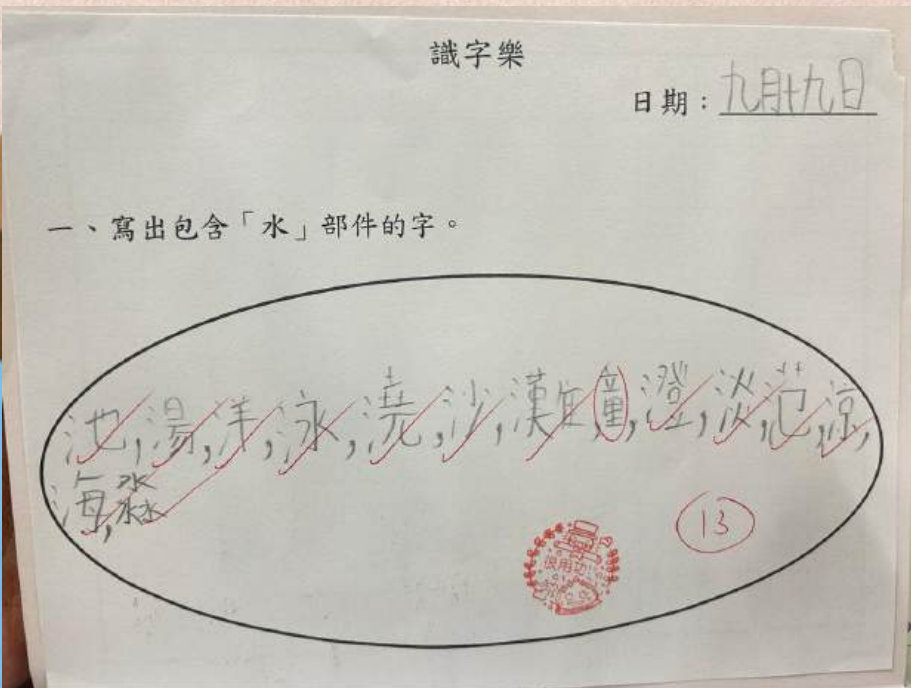 識字樂
日期：九月十九日
一、寫出包含「水」部件的字。
池,湯,洋,泳,澆,沙,漢字,童,澄,淡,范,涼,
海,淼
13
很用功